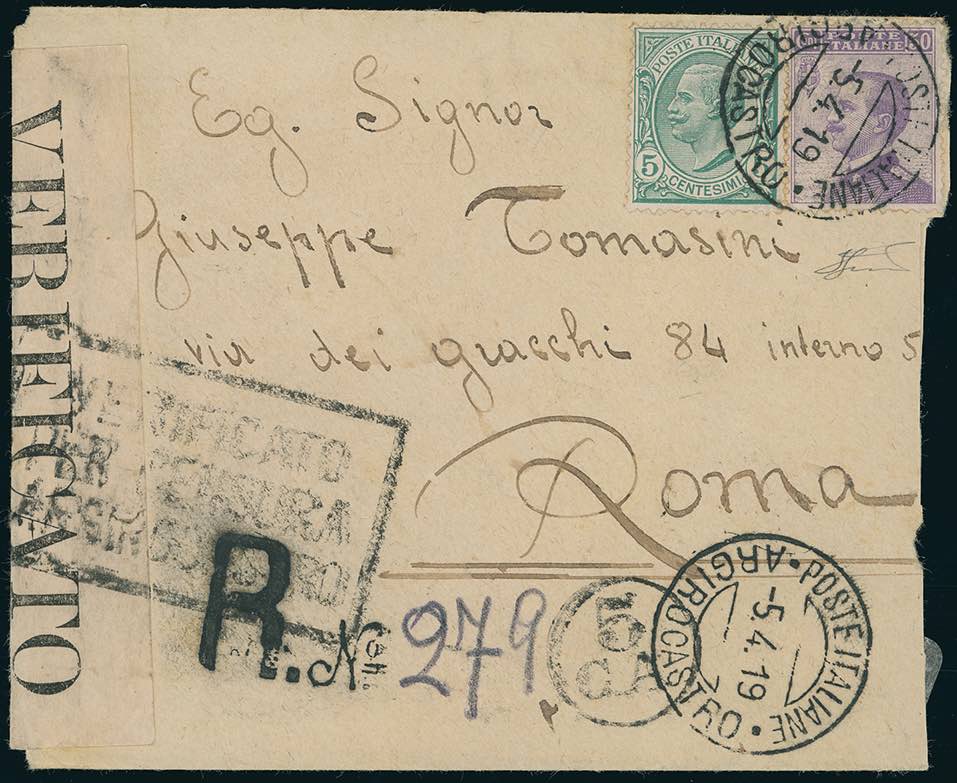 POSTE ITALIANE
5
CENTESIMI
POSTE
ITALIANE 50
POSTE ITALIANE • ARGIROCASTRO •
-5.4.19
Eg. Signor
Giuseppe Tomasini
via dei gracchi 84 interno 5
Roma
VERIFICATO
VERIFICATO
PER CENSURA
R. No
279
5
POSTE ITALIANE • ARGIROCASTRO •
-5.4.19